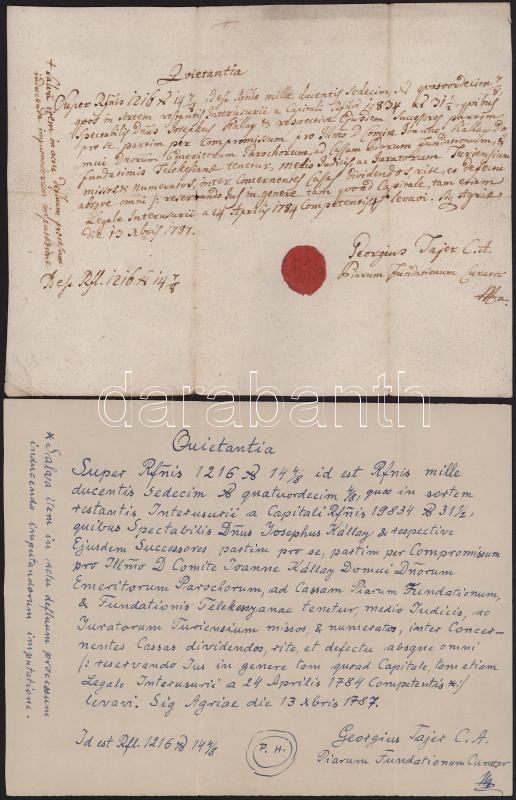 Quietantia
Super Rfñis 1216 Xr 14 7/8, id est Rfñis mille ducentis Sedecim, Xr quatuordecim 7/8,
quos in Sortem restantis Interusurii a Capitali Rfñis 19834 Xr 31 1/2, quibus
Spectabilis Dñus Josephus Kallay & respective Ejusdem Successores partim
pro se, partim per Compromissum pro Illmo D Comite Joanne Kallay Do-
mui Dnorum Emeritorum Parochorum, ad Cassam Piarum fundationum, &
fundationis Telekesyanae tenetur, medio Judicis, ac Juratorum Turiensium
missos & Numeratos, inter Concernentes Cassas dividendos, rite, et defectu
absque omni /: reservando Jus in genere tam quoad Capitale, tam etiam
Legale Interusurii a 24 Aprilis 1784 Competentis + :/ levavi. Sig Agriae
die 13 Xbris 1787.
Georgius Tajer C. A.
Piarum Fundationum Curator
Id est Rfl. 1216 Xr 14 7/8
Quietantia
Super Rfñis 1216 Xr 14 7/8 id est Rfñis mille
ducentis Sedecim Xr quatuordecim 7/8, quos in sortem
restantis Interusurii a Capitali Rfñis 19834 Xr 31 1/2,
quibus Spectabilis Dñus Josephus Kállay & respective
Ejusdem Successores partim pro se, partim per Compromissum
pro Illmo D Comite Ioanne Kállay Domui Dñorum
Emeritorum Parochorum, ad Cassam Piarum Fundationum,
& Fundationis Telekessyanae tenetur, medio Iudicis, ac
Iuratorum Turiensium missos, & numeratos, inter Concer-
nentes Cassas dividendos, rite, et defectu absque omni
/: reservando Ius in genere tam quoad Capitale, tam etiam
Legale Interusurii a 24 Aprilis 1784 Competentis *:/
levavi. Sig Agriae die 13 Xbris 1787.
Georgius Tajer C. A.
Piarum Fundationum Curator
Id est Rfl. 1216 Xr 14 7/8
P. H.
* Salaja item in actu defluum processum
inducenda imputandorum imputatione.
darabanth